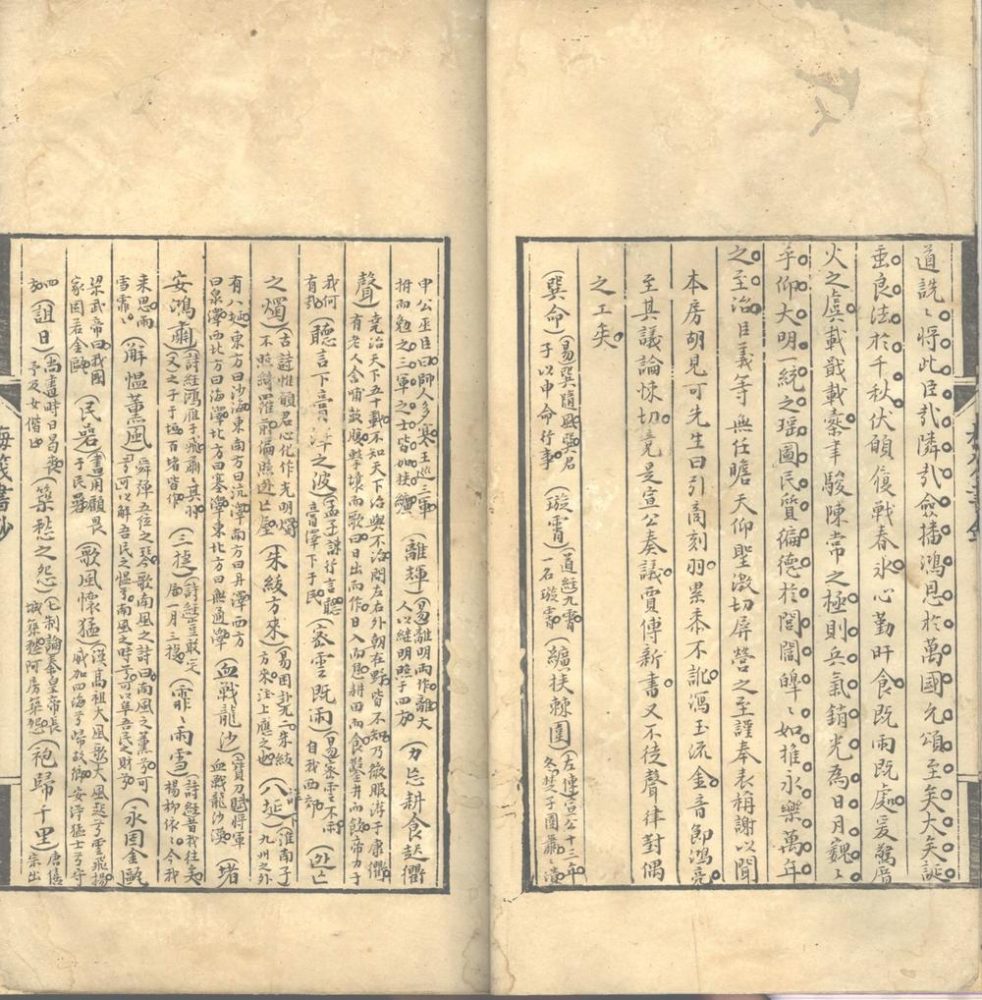 道說〻將此臣弍隣弍僉播鴻恩於萬國允頌至矣大矣誕
垂良法於千秋伏願復戰春氷心勤旰食既雨既處爰驚厝
火之虞載戢載櫜聿駿陳常之極則兵氣銷光為日月巍〻
乎仰大明一統之瑶圖民質徧德於閭閻皥〻如推永樂萬年
之至治臣義等無任瞻天仰聖激切屏營之至謹奉表稱謝以聞
本房胡見可先生曰引商刻羽累黍不訛瀉玉流金音節鴻亮
至其議論悚切竟是宣公奏議賈傅新書又不徒聲律對偶
之工矣
(巽命)(易巽隨風巽君子以申命行事)(璇霄)(道經九霄一名璇霄)(纊挾棘圍)(左傳宣公十二年冬楚子圍蕭〻潰
申公巫臣曰師人多寒王巡三軍拊而勉之三軍之士皆如挾纊)(離輝)(易離明兩作離大人以繼明照于四方)(力忘耕食起衢
聲)(堯治天下五十載不知天下治與不治問左右外朝在野皆不知乃微服游于康衢有老人含哺鼓腹擊壤而歌曰日出而作日入而息耕田而食鑿井而飲帝力于
我何有哉)(聽言下膏澤之波)(孟子諫行言聽膏澤下于民)(密雲既雨)(易密雲不雨自我西郊)(逃亡
之燭)(古詩惟願君心化作光明燭不照綺羅前偏照逃亡屋)(朱紱方來)(易困卦九二朱紱方來注上應之也)(八埏)(淮南子九州之外
有八埏東方曰沙海東南方曰沆澤南方曰丹澤西方曰泉澤西北方曰海澤北方曰塞澤東北方曰無通澤)(血戰龍沙)(寶刀賦將軍血戰龍沙漠)(堵
安鴻肅)(詩經鴻雁于飛肅〻其羽又之子于垣百堵皆作)(三捷)(詩經豈敢定居一月三捷)(霏〻雨雪)(詩經昔我往矣楊柳依〻今我
来思雨雪霏〻)(解慍薰風)(舜彈五弦之琴歌南風之詩曰南風之薰兮可以解吾民之慍兮南風之時兮可以阜吾民之財兮)(永固金甌)
梁武帝曰我國家固若金甌)(民碞)(書用顧畏于民碞)(歌風懷猛)(漢高祖大風歌大風起兮雲飛揚威加四海兮歸故鄉安得猛士兮守
四方)(詛日)(尚書時日曷喪予及女偕亡)(築愁之怨)(論秦皇帝長城築愁阿房築怨)(袍歸千里)(唐僖宗出